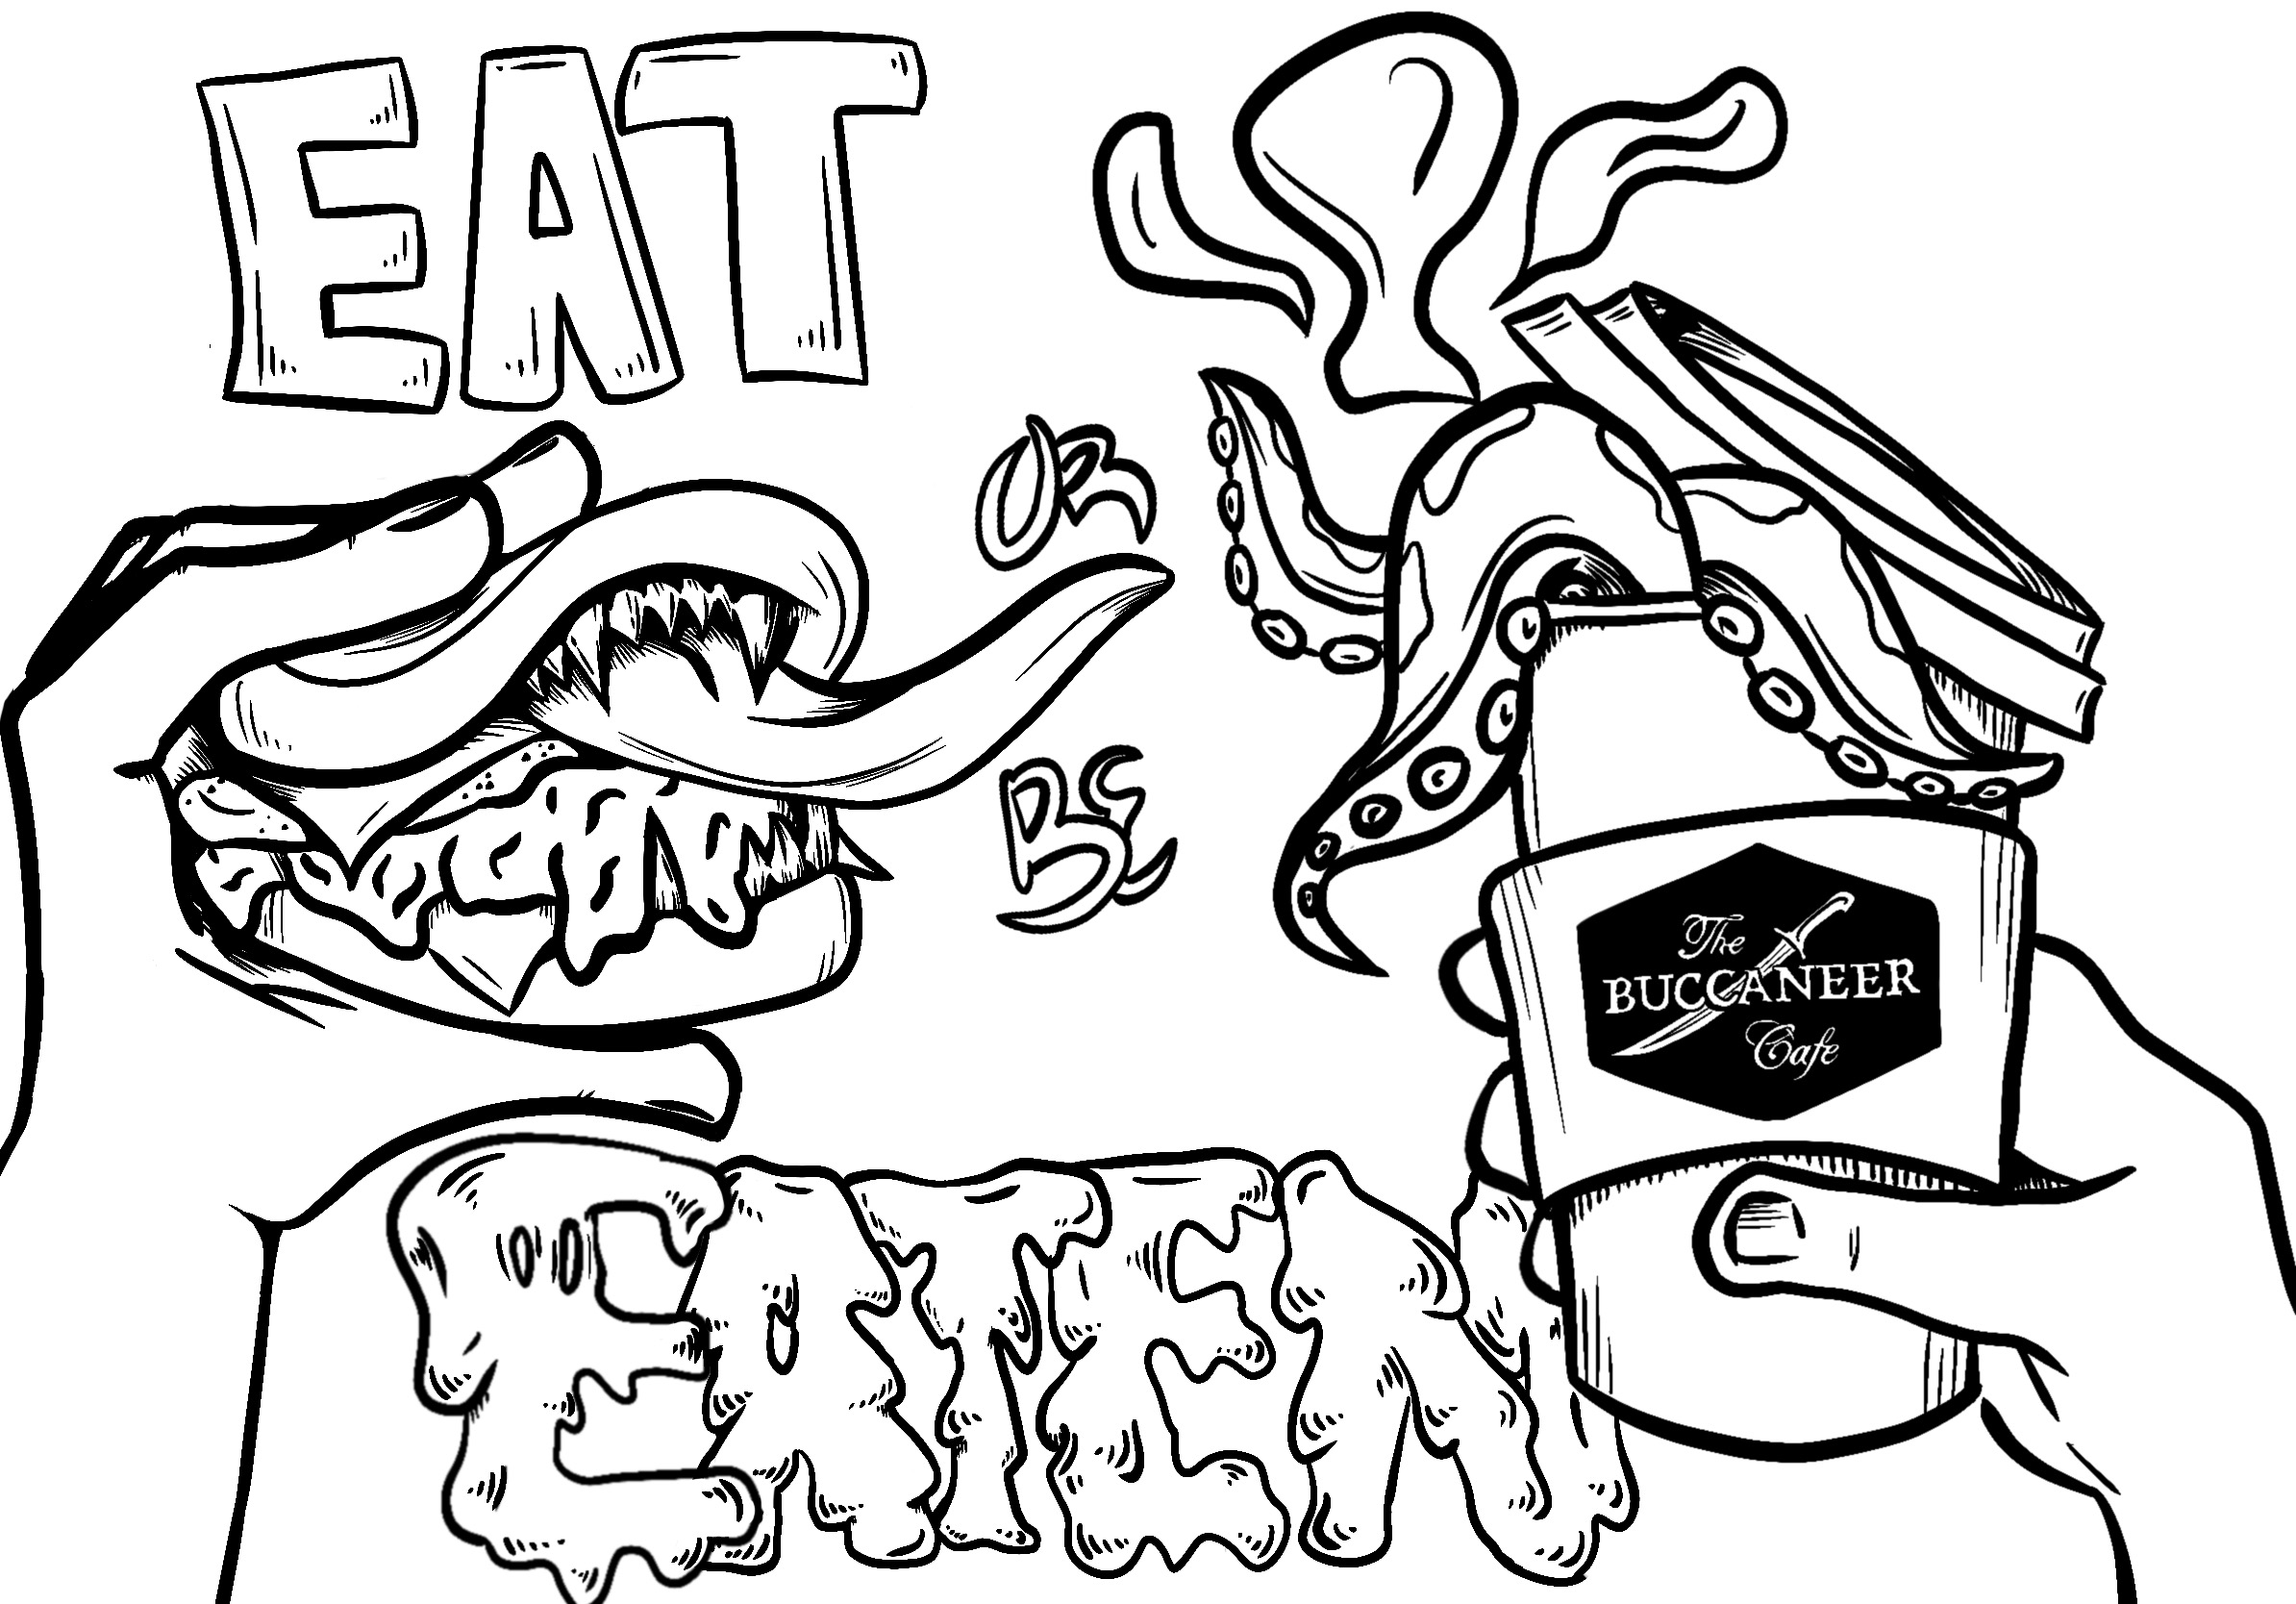 EAT
OR
BE
EATEN
The
BUCCANEER
Cafe